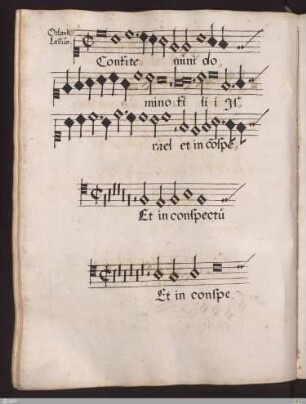 Orlandi
Lassus.
Confite mini do
mino fi li i Is
rael et in cōspe
Et in conspectū
Et in conspe.